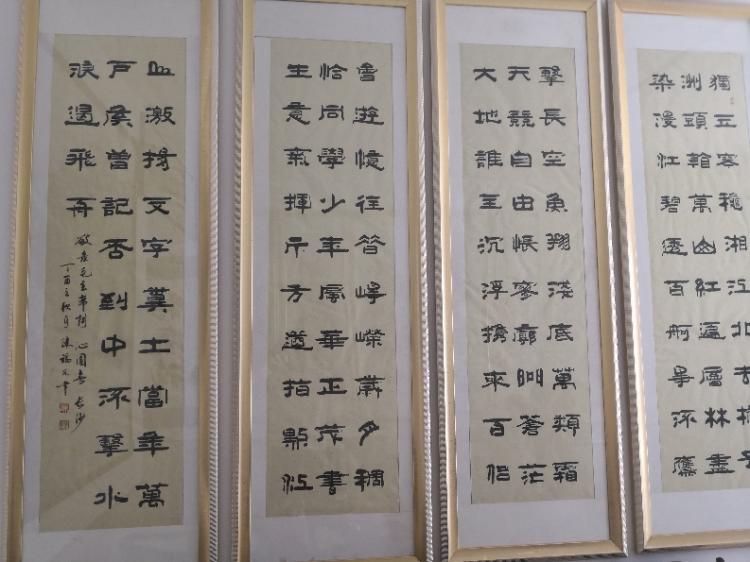 獨立寒穐湘江北去橘
洲頭看萬山紅遍層林盡
染漫江碧透百舸爭流鷹
擊長空魚翔淺底萬類霜
天競自由悵寥廓問蒼茫
大地誰主沉浮攜來百侶
曾遊憶往昔崢嶸歲月稠
恰同學少年風華正茂書
生意氣揮斥方遒指點江
山激揚文字糞土當年萬
戶侯曾記否到中流擊水
浪遏飛舟
敬录毛主席词 沁園春 長沙
丁酉之秋月 陳 書